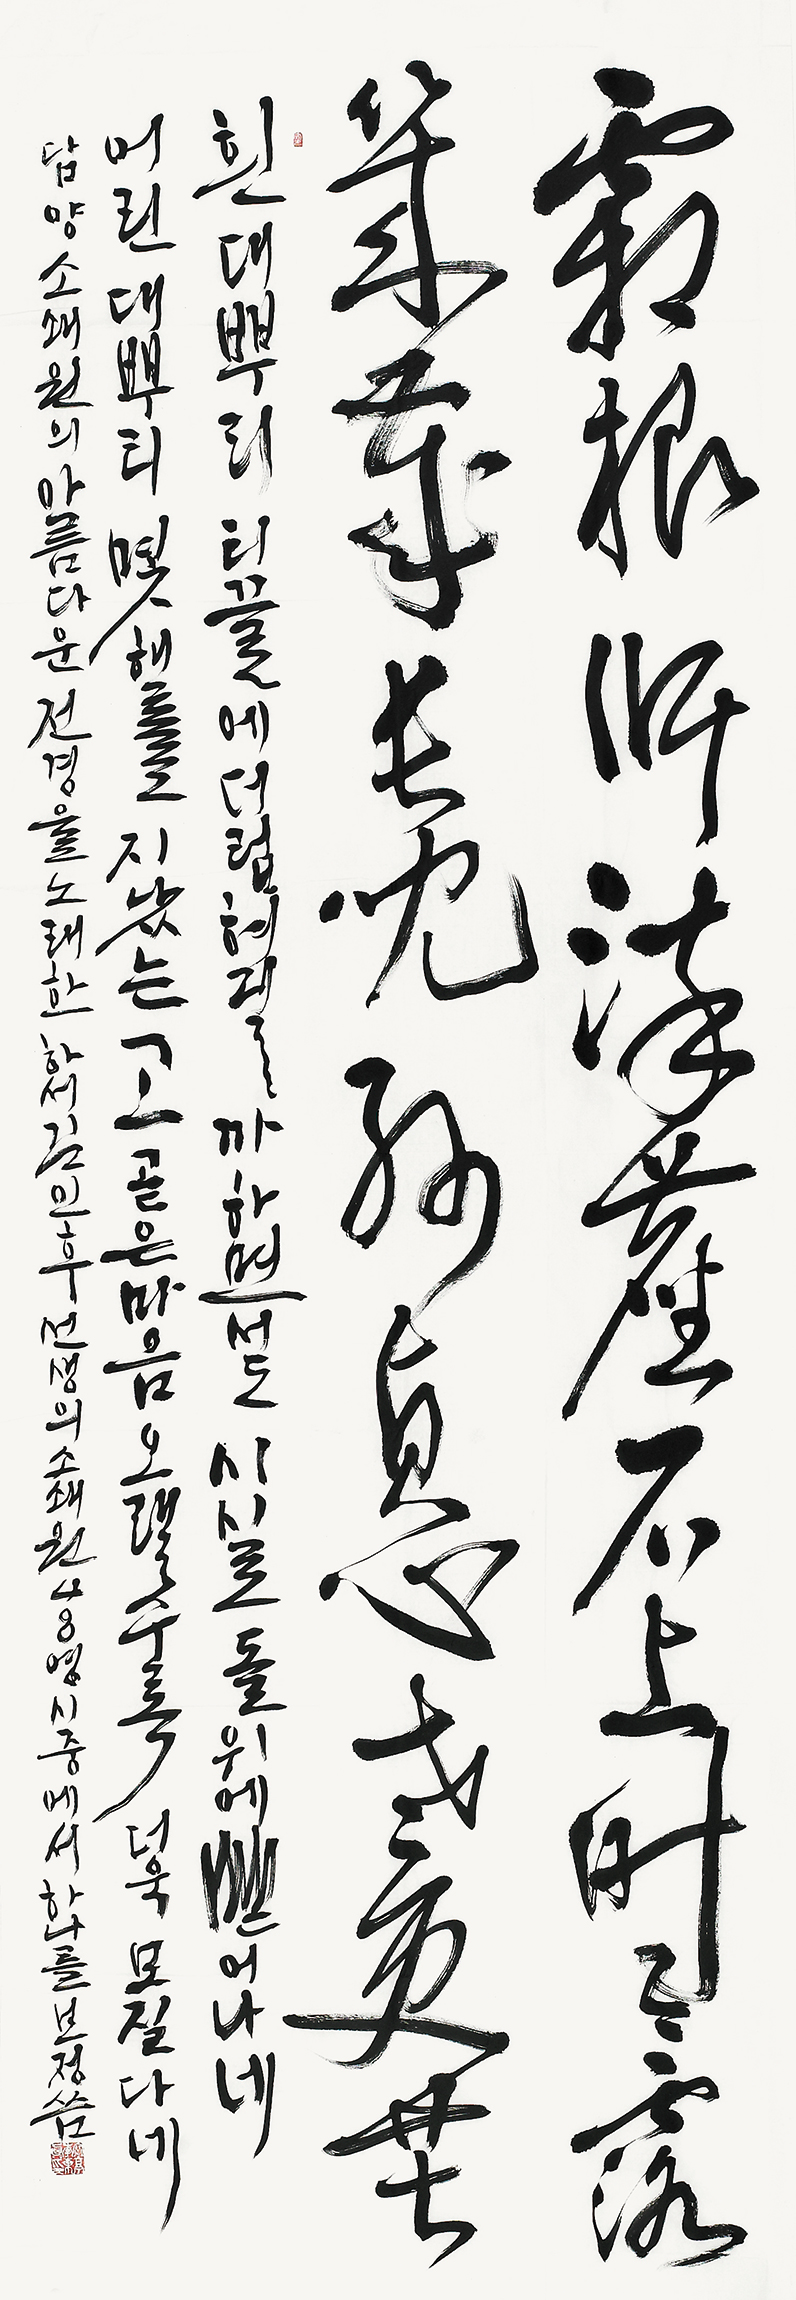 霜根恥染塵石上時〻露
幾歲長兒孫貞心老更苦
흰 대뿌리 티끌에 더럽혀질까 하면서도 시시로 돌 위에 뻗어나네
어린 대뿌리 몇 해를 지났는고 곧은 마음 오랠수록 더욱 모질다네
담양 소쇄원의 아름다운 전경을 노래한 하서 김인후 선생의 소쇄원 48영 시중에서 하나를 보정 씀